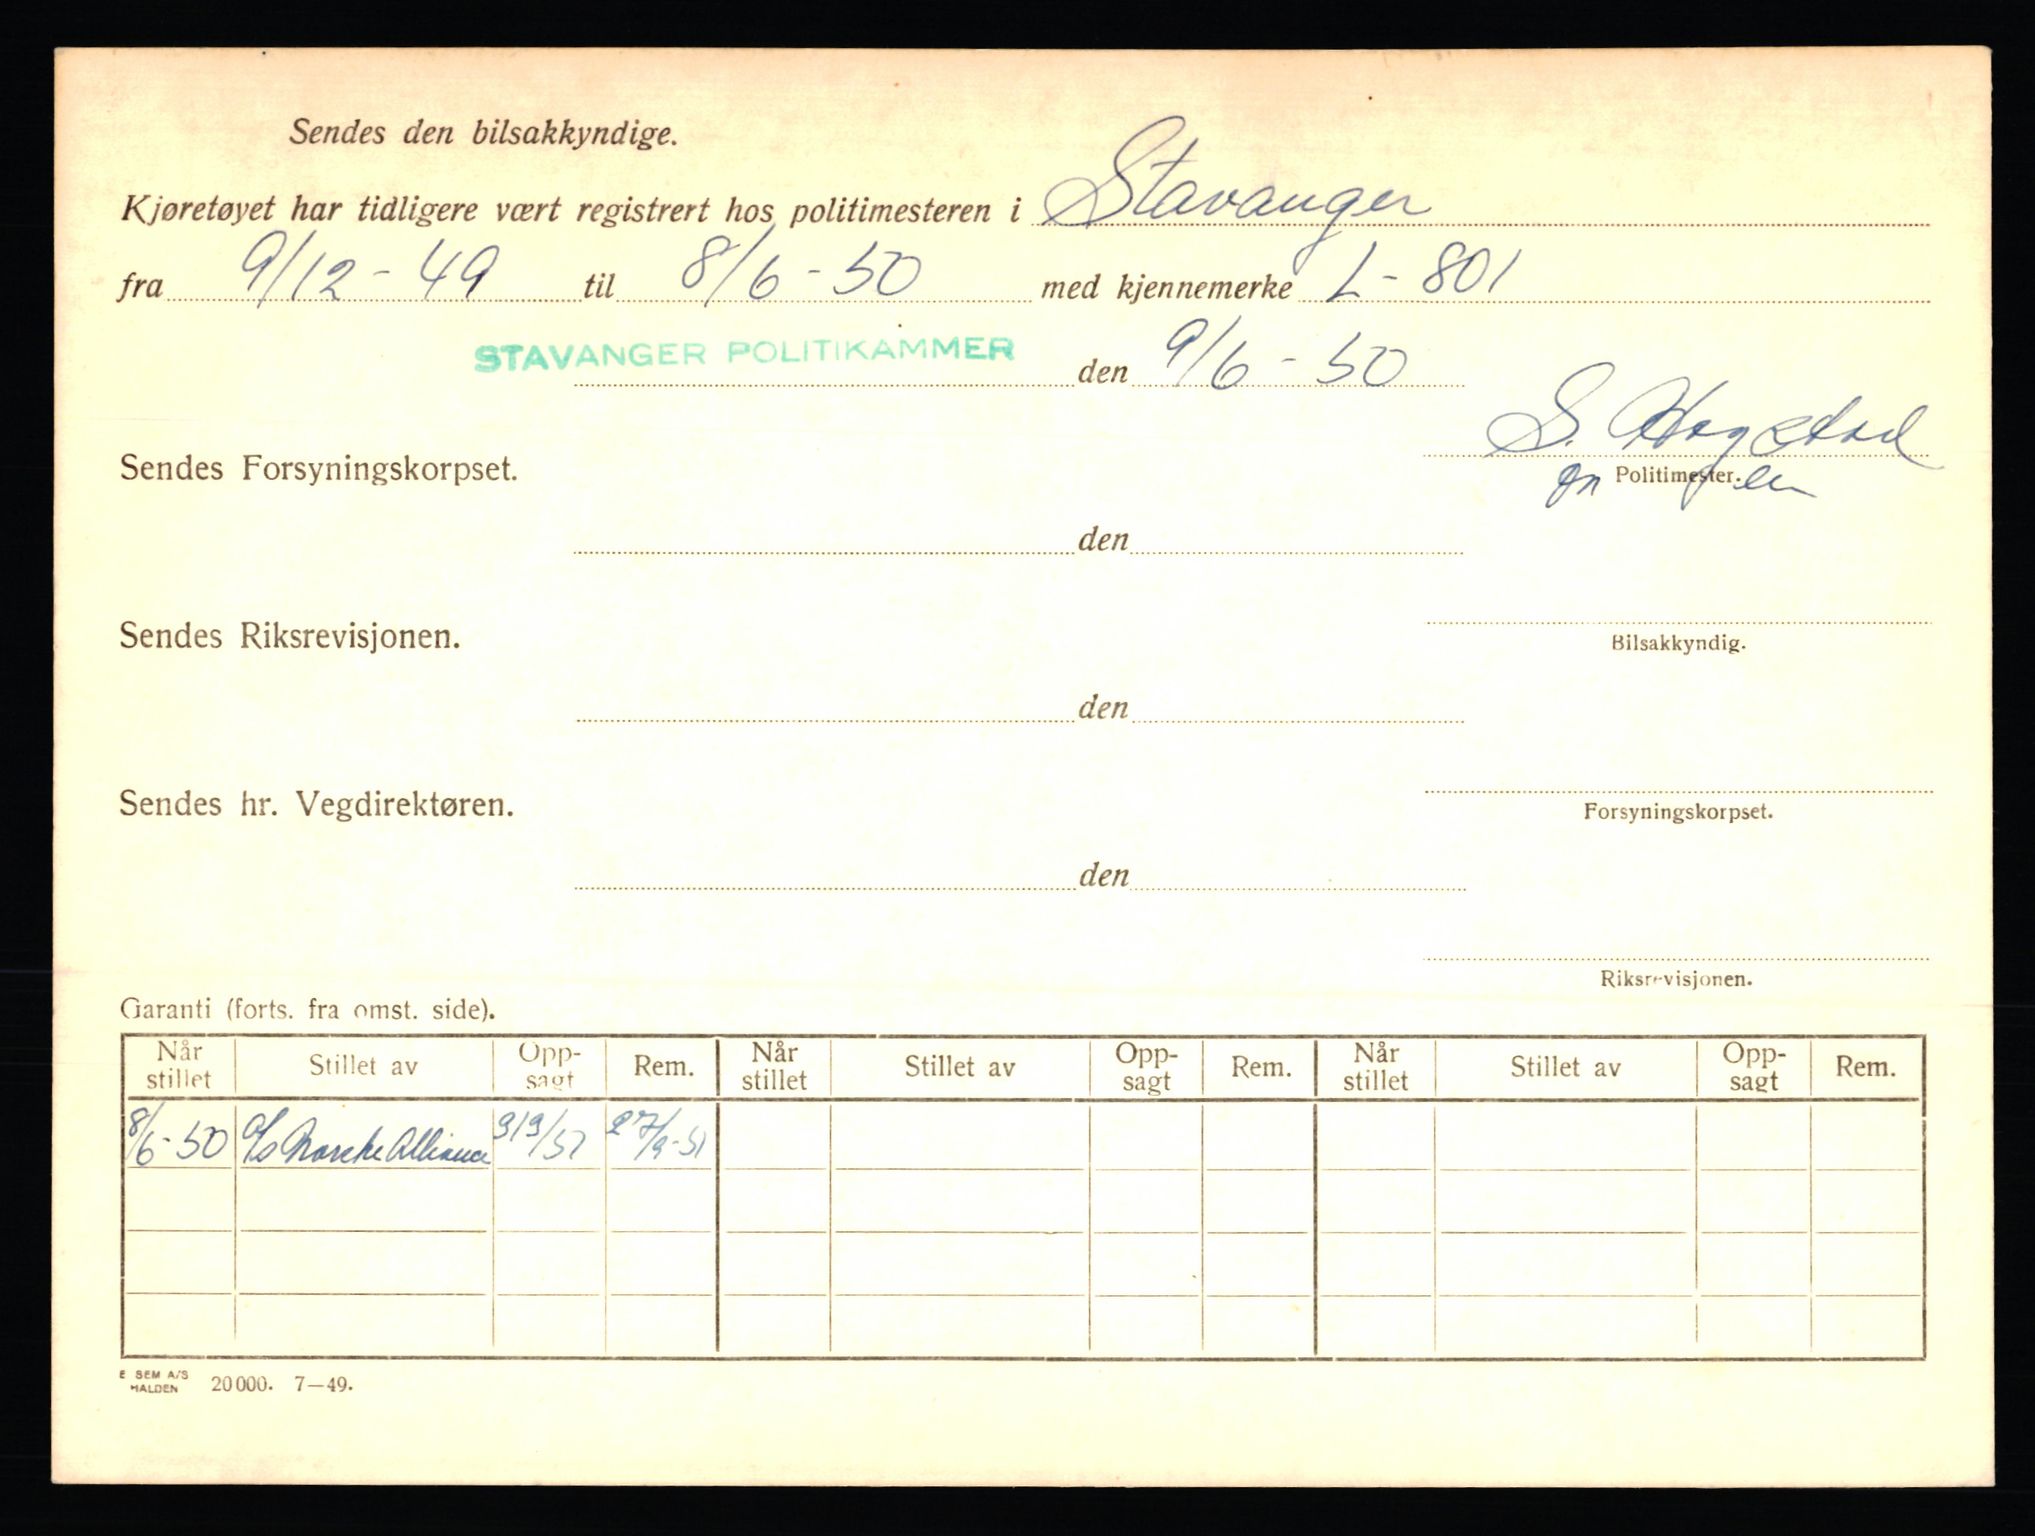 Sendes den bilsakkyndige.
Kjøretøyet har tidligere vært registrert hos politimesteren i Stavanger
fra 9/12-49 til 8/6-50 med kjennemerke L-801
STAVANGER POLITIKAMMER den 9/6-50
S. Hogstad
Sendes Forsyningskorpset.
Politimester.
den
Sendes Riksrevisjonen.
Bilsakkyndig.
den
Sendes hr. Vegdirektøren.
Forsyningskorpset.
den
Riksrevisjonen.
Garanti (forts. fra omst. side).
Når stillet Stillet av Opp-sagt Rem. Når stillet Stillet av Opp-sagt Rem. Når stillet Stillet av Opp-sagt Rem.
8/6-50 A/S Norske Alliance 27/9-51
E SEM A/S
HALDEN 20000. 7—49.